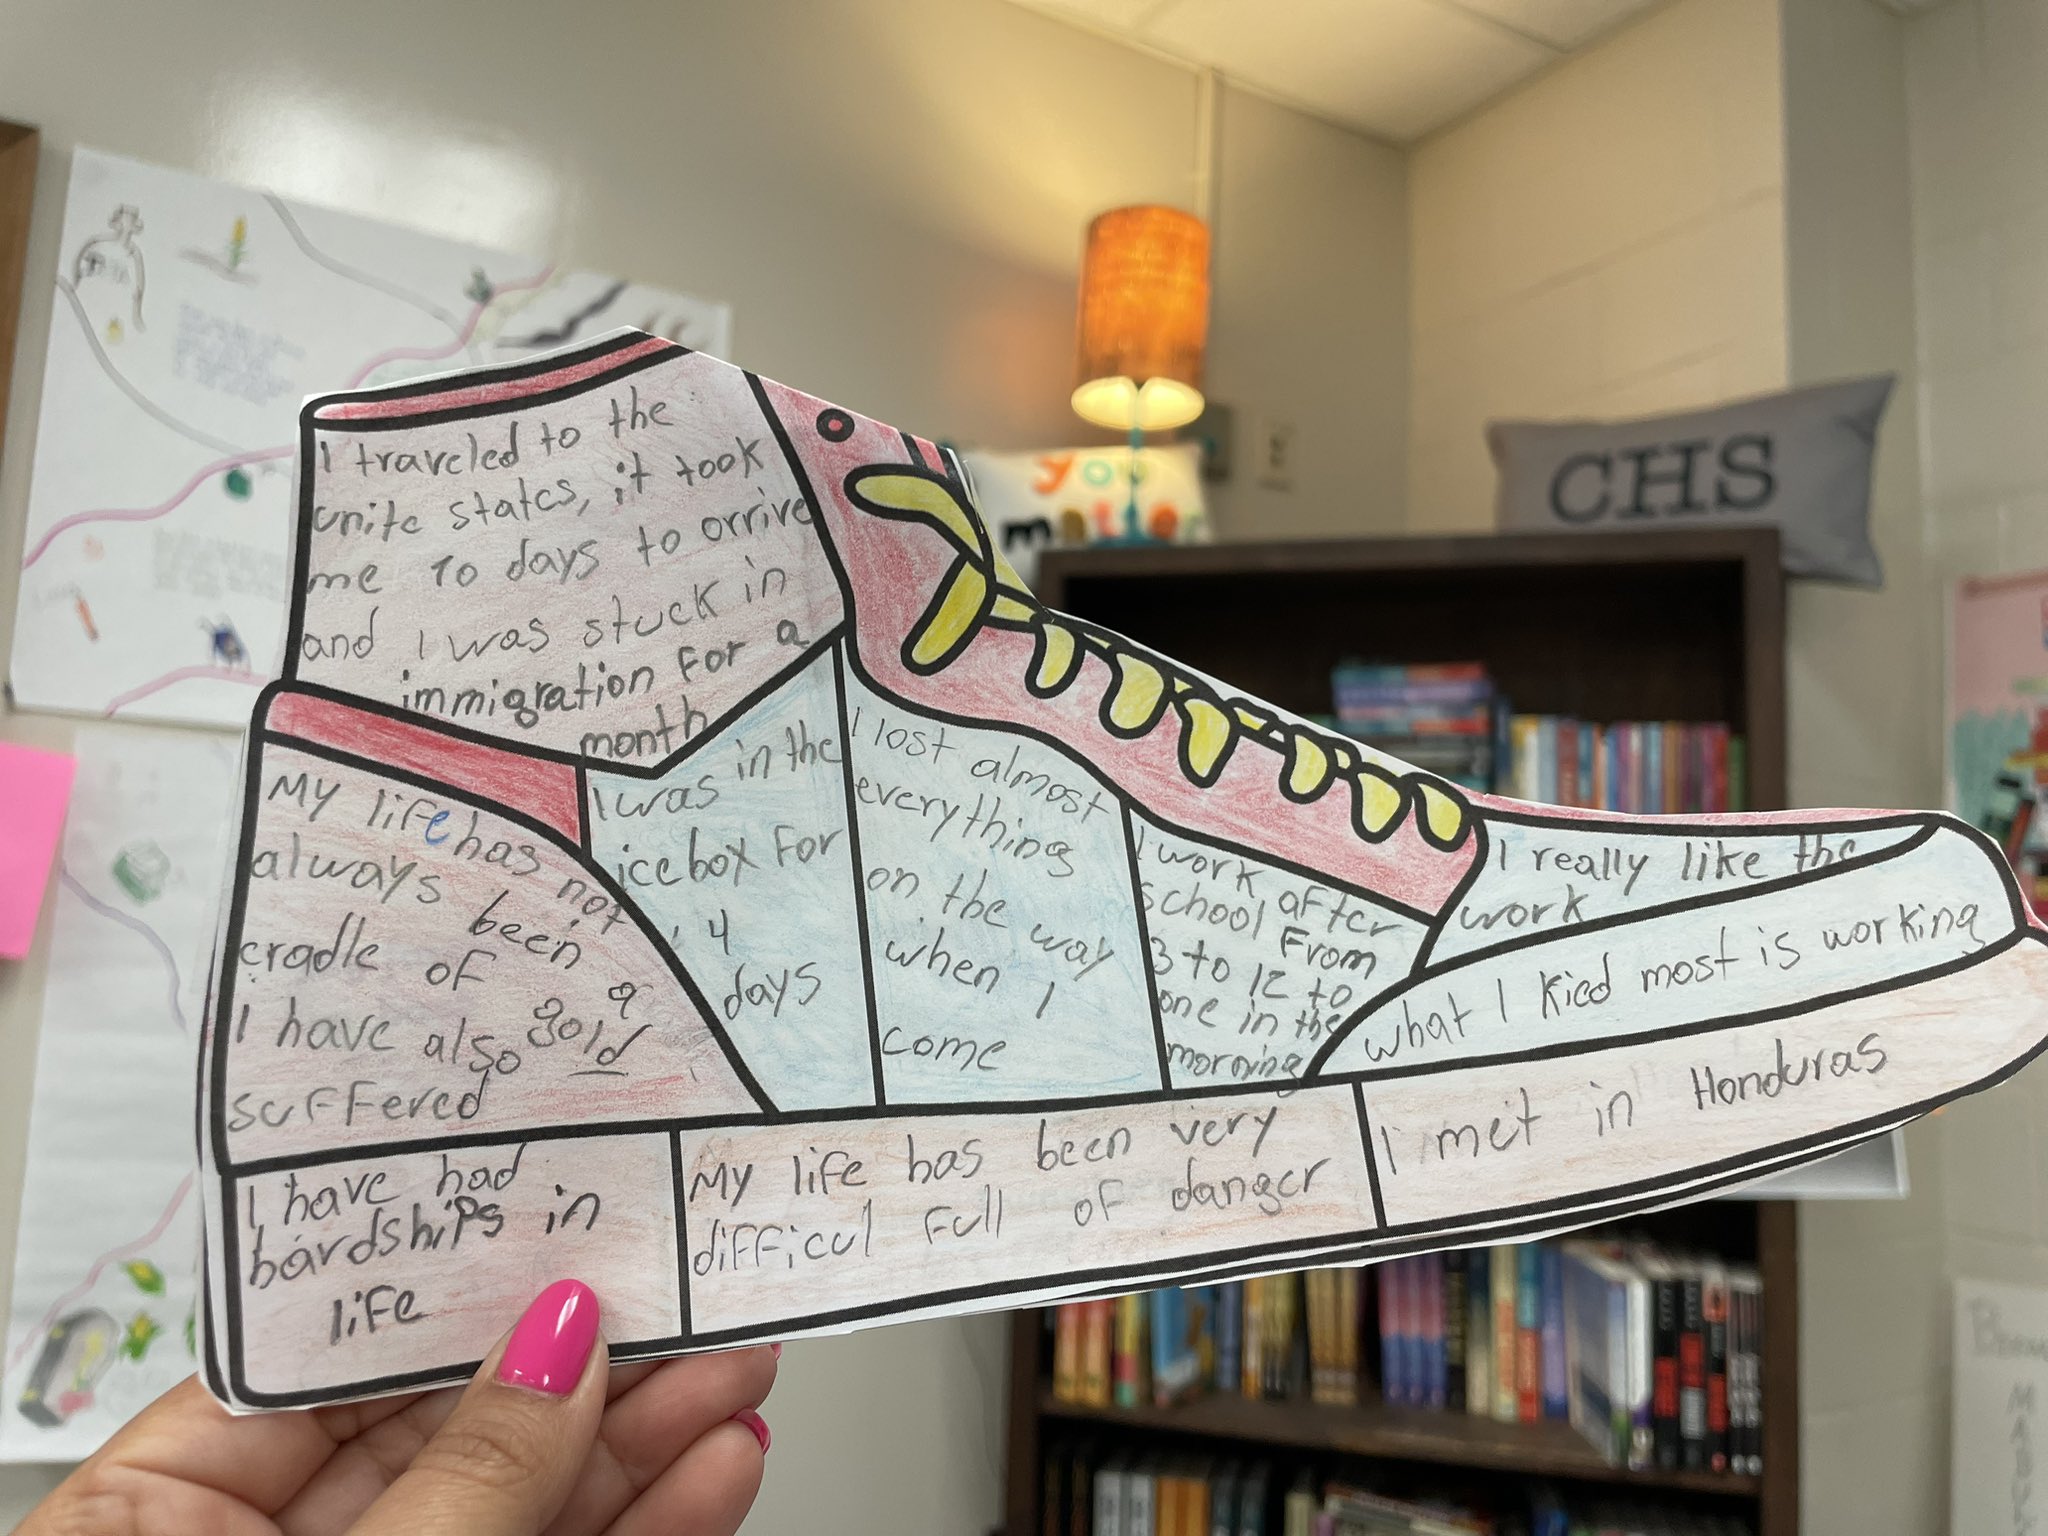 I traveled to the
unite states, it took
me 10 days to orrive
and I was stuck in
immigration for a
month
My life has not
always been a
cradle of gold
I have also
suffered
I was in the
icebox for
4
days
I lost almost
everything
on the way
when I
come
I work after
school from
3 to 12 to
one in the
morning
I really like the
work
what I kied most is working
I have had
hardships in
life
My life has been very
difficul full of danger
I met in Honduras
you
matter
CHS